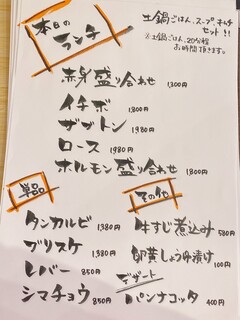 本日の
ランチ
土鍋ごはん、スープ、キムチ
セット!!
※土鍋ごはん、20分程
お時間頂きます。
赤身盛り合わせ 1300円
イチボ 1800円
ザブトン 1980円
ロース 1980円
ホルモン盛り合わせ 1800円
単品
タンカルビ 1380円
ブリスケ 1380円
レバー 850円
シマチョウ 850円
その他
牛すじ煮込み 580円
卵黄しょうゆ漬け 100円
デザート
パンナコッタ 400円